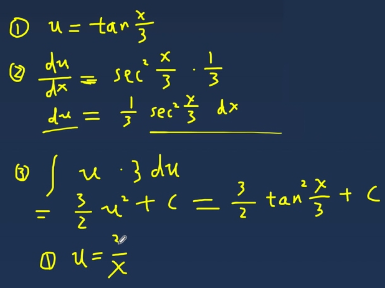 ① u = tan x/3
② du/dx = sec² x/3 · 1/3
du = 1/3 sec² x/3 dx
③ ∫ u · 3 du
= 3/2 u² + C = 3/2 tan² x/3 + C
① u = 2/x